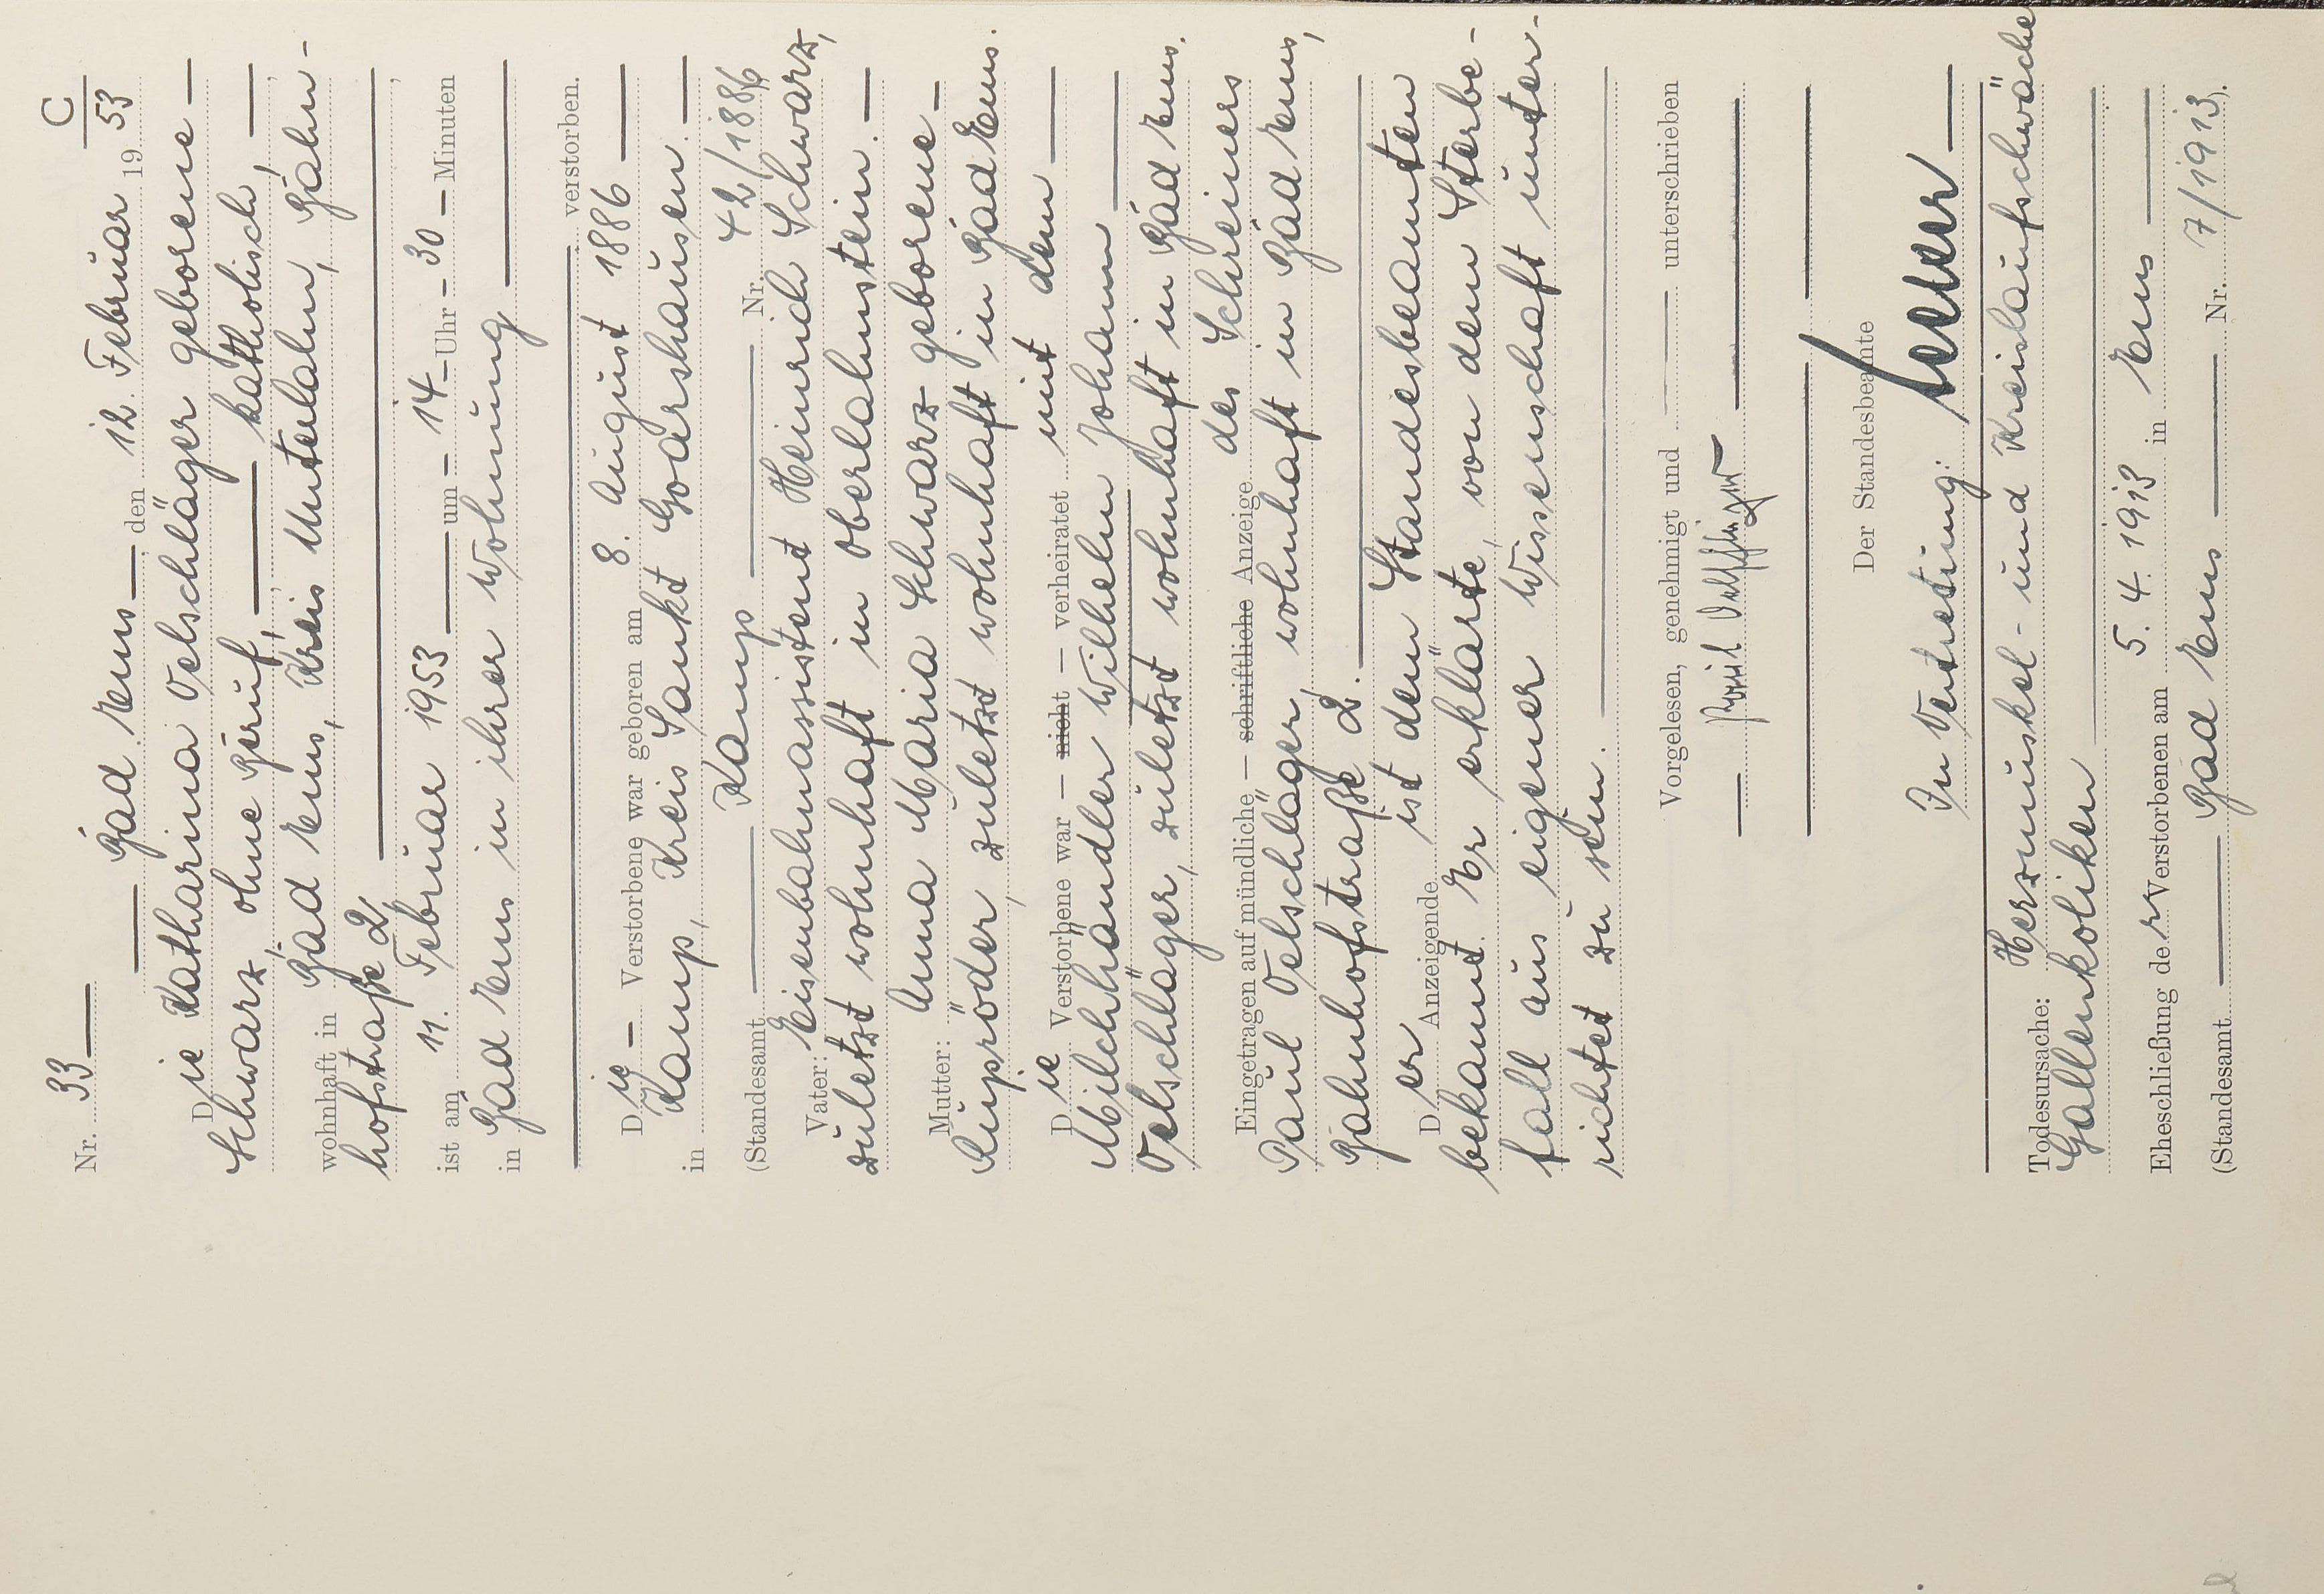 C
Nr. 33
Bad Ems, den 12. Februar 1953
Die Katharina Oelschläger geborene
Schwarz, ohne Beruf, katholisch,
wohnhaft in Bad Ems, Kreis Unterlahn, Bahn-
hofstraße 2,
ist am 11. Februar 1953 um 14 Uhr 30 Minuten
in Bad Ems in ihrer Wohnung
verstorben.
Die Verstorbene war geboren am 8. August 1886
in Kamp, Kreis Sankt Goarshausen.
(Standesamt Kamp Nr. 42/1886)
Vater: Eisenbahnassistent Heinrich Schwarz,
zuletzt wohnhaft in Oberlahnstein.
Mutter: Anna Maria Schwarz geborene
Rupröder, zuletzt wohnhaft in Bad Ems.
Die Verstorbene war — nicht — verheiratet mit dem
Milchhändler Wilhelm Johann
Oelschläger, zuletzt wohnhaft in Bad Ems.
Eingetragen auf mündliche — schriftliche Anzeige des Schreiners
Paul Oelschläger, wohnhaft in Bad Ems,
Bahnhofstraße 2.
Der Anzeigende ist dem Standesbeamten
bekannt. Er erklärte, von dem Sterbe-
fall aus eigener Wissenschaft unter-
richtet zu sein.
Vorgelesen, genehmigt und unterschrieben
Paul Oelschläger
Der Standesbeamte
In Vertretung:
Todesursache: Herzmuskel- und Kreislaufschwäche
Gallenkoliken
Eheschließung der Verstorbenen am 5. 4. 1913 in Ems
(Standesamt Bad Ems Nr. 7/1913).